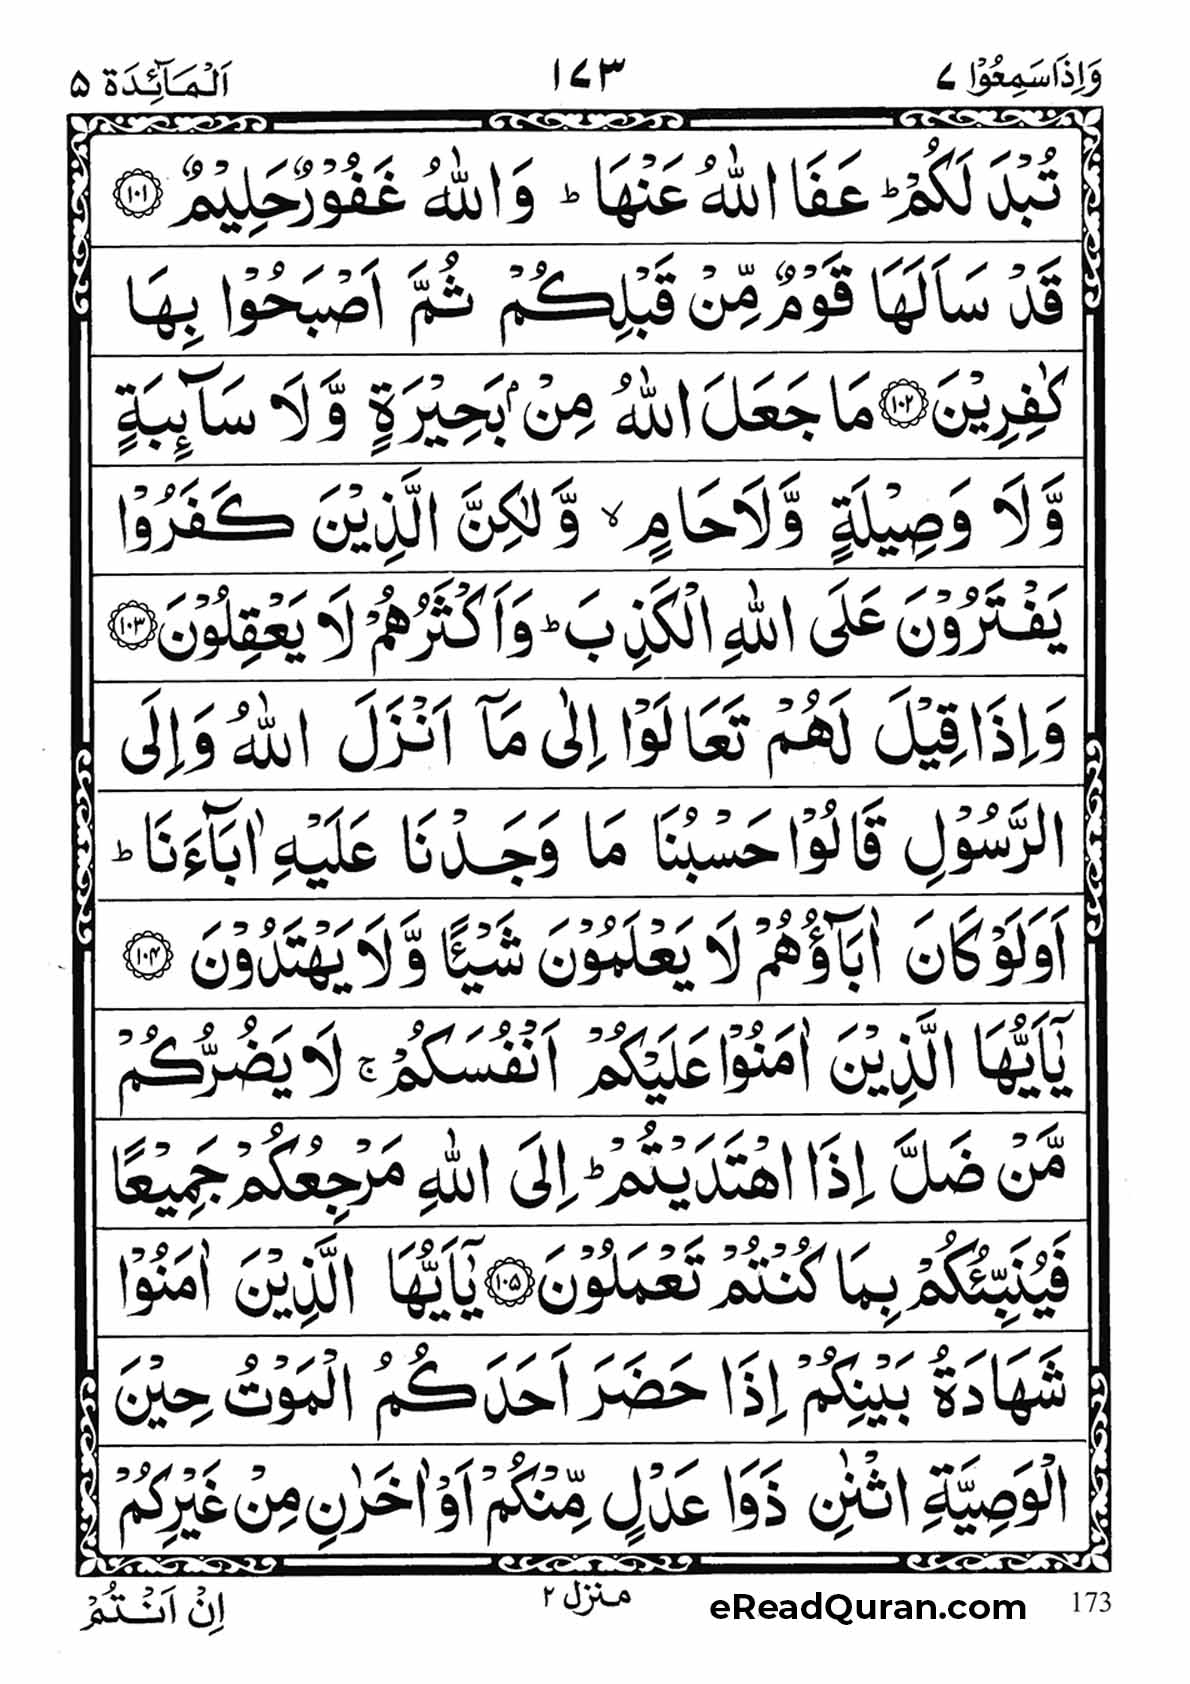 وَاِذَا سَمِعُوْا ۷
۱۷۳
اَلْمَآئِدَة ۵
تُبْدَ لَكُمْ ؕ عَفَا اللّٰهُ عَنْهَا ؕ وَاللّٰهُ غَفُوْرٌ حَلِيْمٌ ۱۰۱
قَدْ سَاَلَهَا قَوْمٌ مِّنْ قَبْلِكُمْ ثُمَّ اَصْبَحُوْا بِهَا
كٰفِرِيْنَ ۱۰۲ مَا جَعَلَ اللّٰهُ مِنْۢ بَحِيْرَةٍ وَّلَا سَآئِبَةٍ
وَّلَا وَصِيْلَةٍ وَّلَا حَامٍ ۙ وَّلٰكِنَّ الَّذِيْنَ كَفَرُوْا
يَفْتَرُوْنَ عَلَى اللّٰهِ الْكَذِبَ ؕ وَاَكْثَرُهُمْ لَا يَعْقِلُوْنَ ۱۰۳
وَاِذَا قِيْلَ لَهُمْ تَعَالَوْا اِلٰى مَآ اَنْزَلَ اللّٰهُ وَاِلَى
الرَّسُوْلِ قَالُوْا حَسْبُنَا مَا وَجَدْنَا عَلَيْهِ اٰبَآءَنَا ؕ
اَوَلَوْ كَانَ اٰبَآؤُهُمْ لَا يَعْلَمُوْنَ شَيْـًٔا وَّلَا يَهْتَدُوْنَ ۱۰۴
يٰۤاَيُّهَا الَّذِيْنَ اٰمَنُوْا عَلَيْكُمْ اَنْفُسَكُمْ ۚ لَا يَضُرُّكُمْ
مَّنْ ضَلَّ اِذَا اهْتَدَيْتُمْ ؕ اِلَى اللّٰهِ مَرْجِعُكُمْ جَمِيْعًا
فَيُنَبِّئُكُمْ بِمَا كُنْتُمْ تَعْمَلُوْنَ ۱۰۵ يٰۤاَيُّهَا الَّذِيْنَ اٰمَنُوْا
شَهَادَةُ بَيْنِكُمْ اِذَا حَضَرَ اَحَدَكُمُ الْمَوْتُ حِيْنَ
الْوَصِيَّةِ اثْنٰنِ ذَوَا عَدْلٍ مِّنْكُمْ اَوْ اٰخَرٰنِ مِنْ غَيْرِكُمْ
173
eReadQuran.com
منزل ۲
اِنْ اَنْتُمْ